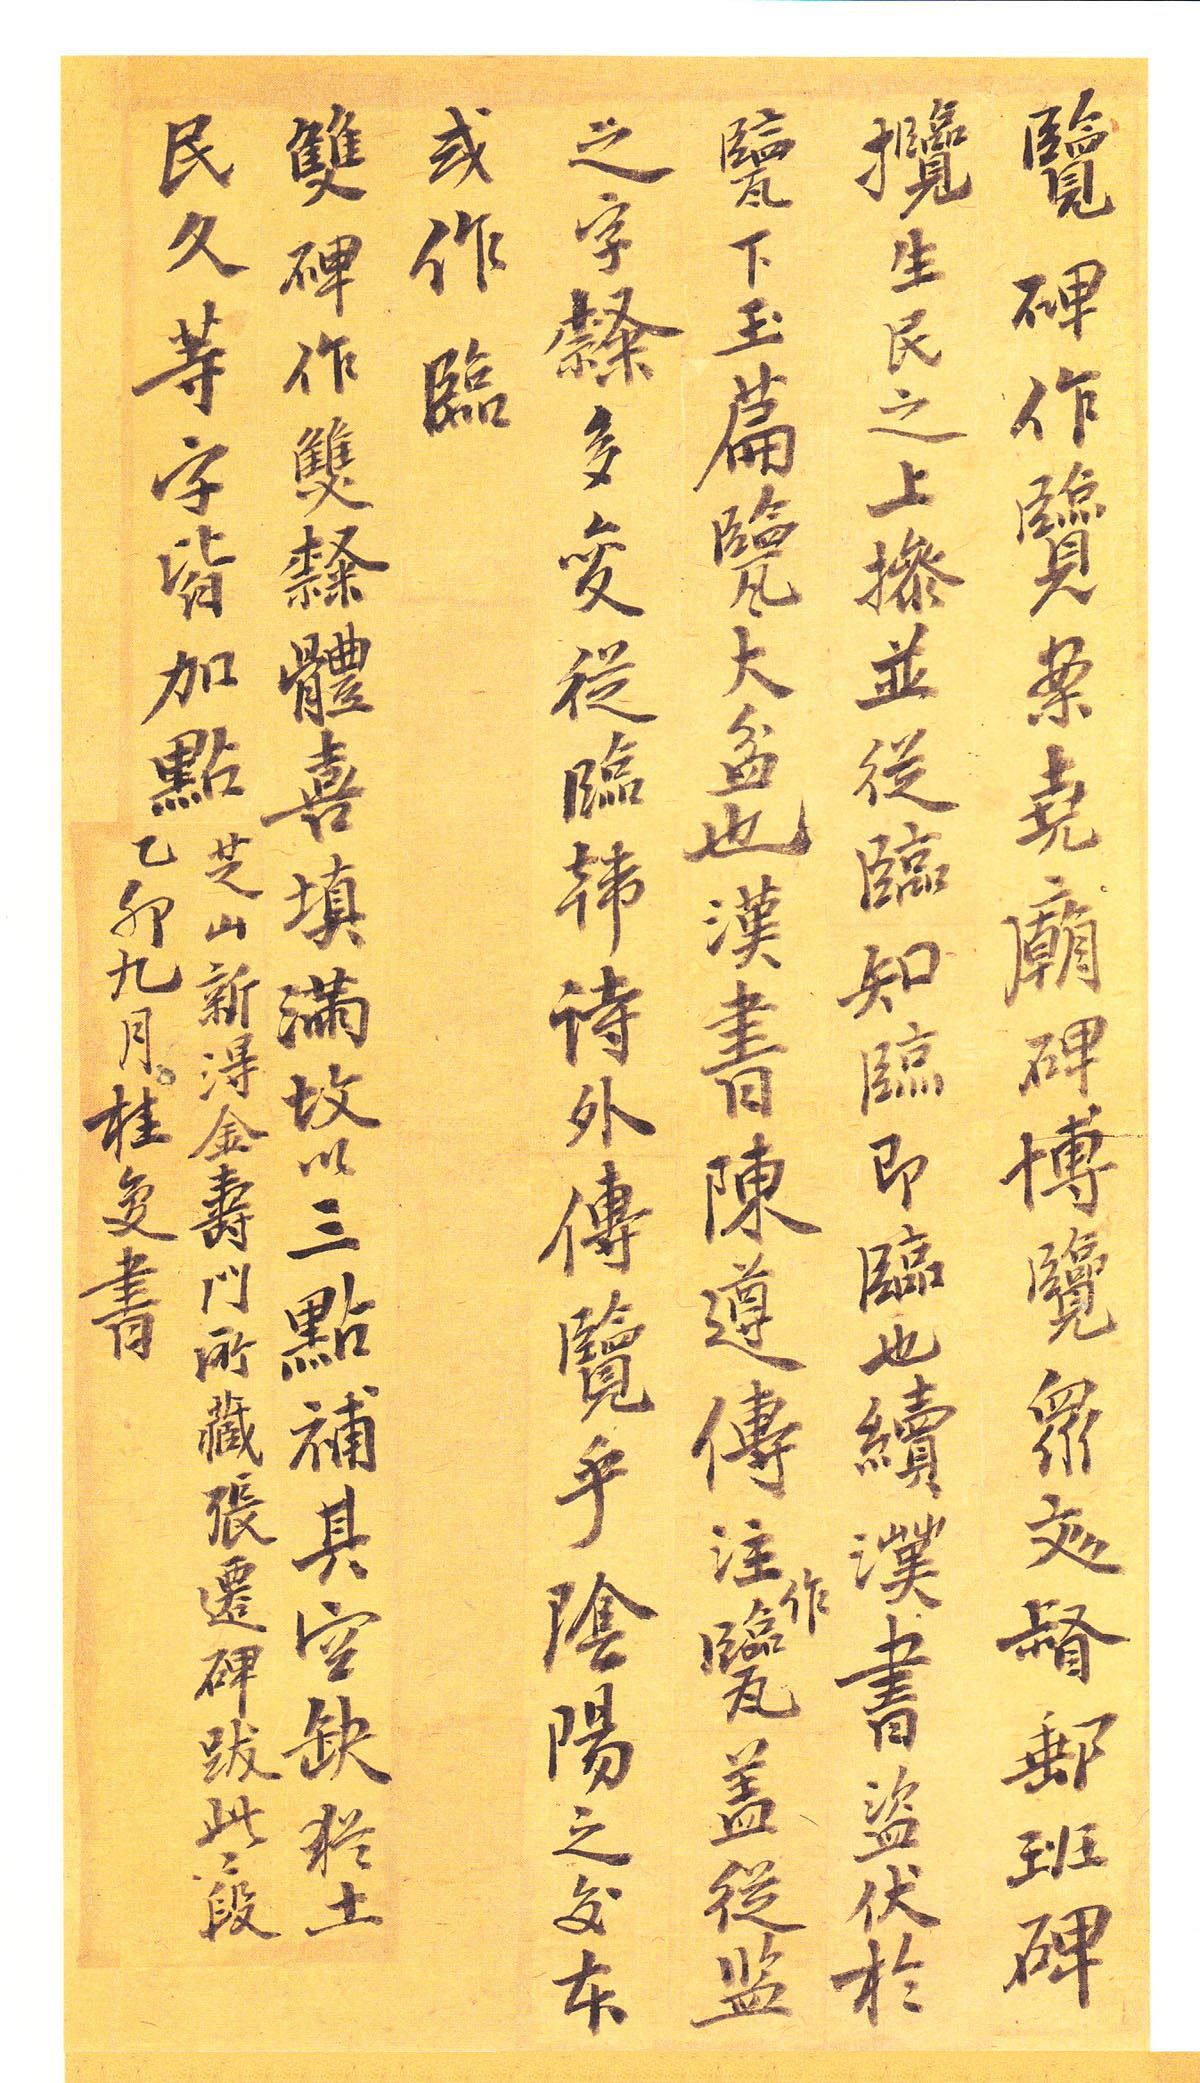 覽碑作覽案堯廟碑博覽眾文督郵班碑
攬生民之上攥並從臨知臨即臨也續漢書盜伏於
甖下玉篇甖大盆也漢書陳遵傳注作甖蓋從監
之字隸多變從臨韓詩外傳覽乎陰陽之交本
或作臨
雙碑作雙隸體喜填滿故以三點補其空缺猶土
民久等字皆加點
芝山新得金壽門所藏張遷碑跋此段
乙卯九月桂馥書